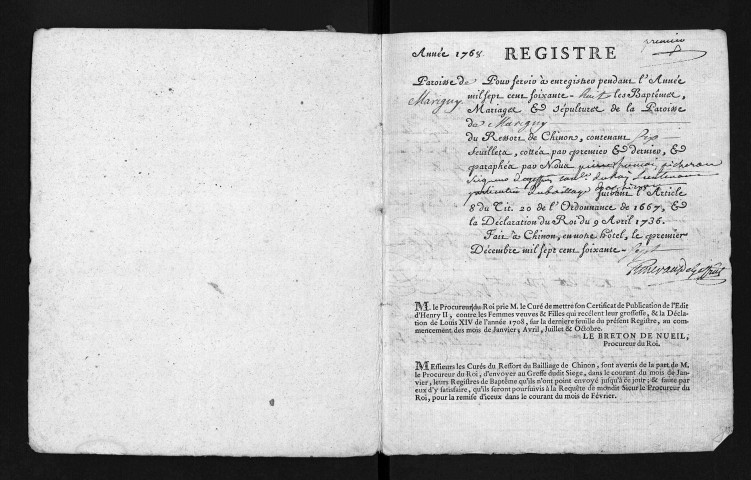 premier
Année 1768. REGISTRE
Paroisse de Marigny
Pour servir à enregistrer pendant l'Année
mil sept cent soixante-huit les Baptêmes,
Mariages & Sépultures de la Paroisse
de Marigny
du Ressort de Chinon, contenant sept
feuillets, cottés par premier & dernier, &
paraphés par Nous pierre
Seigneur Lieutenant
particulier suivant l'Article
8 du Tit. 20 de l'Ordonnance de 1667, &
la Déclaration du Roi du 9 Avril 1736.
Fait à Chinon, en notre hôtel, le premier
Décembre mil sept cent soixante-sept
M. le Procureur du Roi prie M. le Curé de mettre son Certificat de Publication de l'Edit
d'Henry II, contre les Femmes veuves & Filles qui recèlent leur grossesse, & la Décla-
tion de Louis XIV de l'année 1708, sur la derniere feuille du présent Registre, au com-
mencement des mois de Janvier; Avril, Juillet & Octobre.
LE BRETON DE NUEIL,
Procureur du Roi.
Messieurs les Curés du Ressort du Bailliage de Chinon, sont avertis de la part de M.
le Procureur du Roi, d'envoyer au Greffe dudit Siege, dans le courant du mois de Jan-
vier, leurs Registres de Baptême qu'ils n'ont point envoyé jusqu'à ce jour; & faute par
eux d'y satisfaire, qu'ils seront poursuivis à la Requête de mondit Sieur le Procureur du
Roi, pour la remise d'iceux dans le courant du mois de Février.